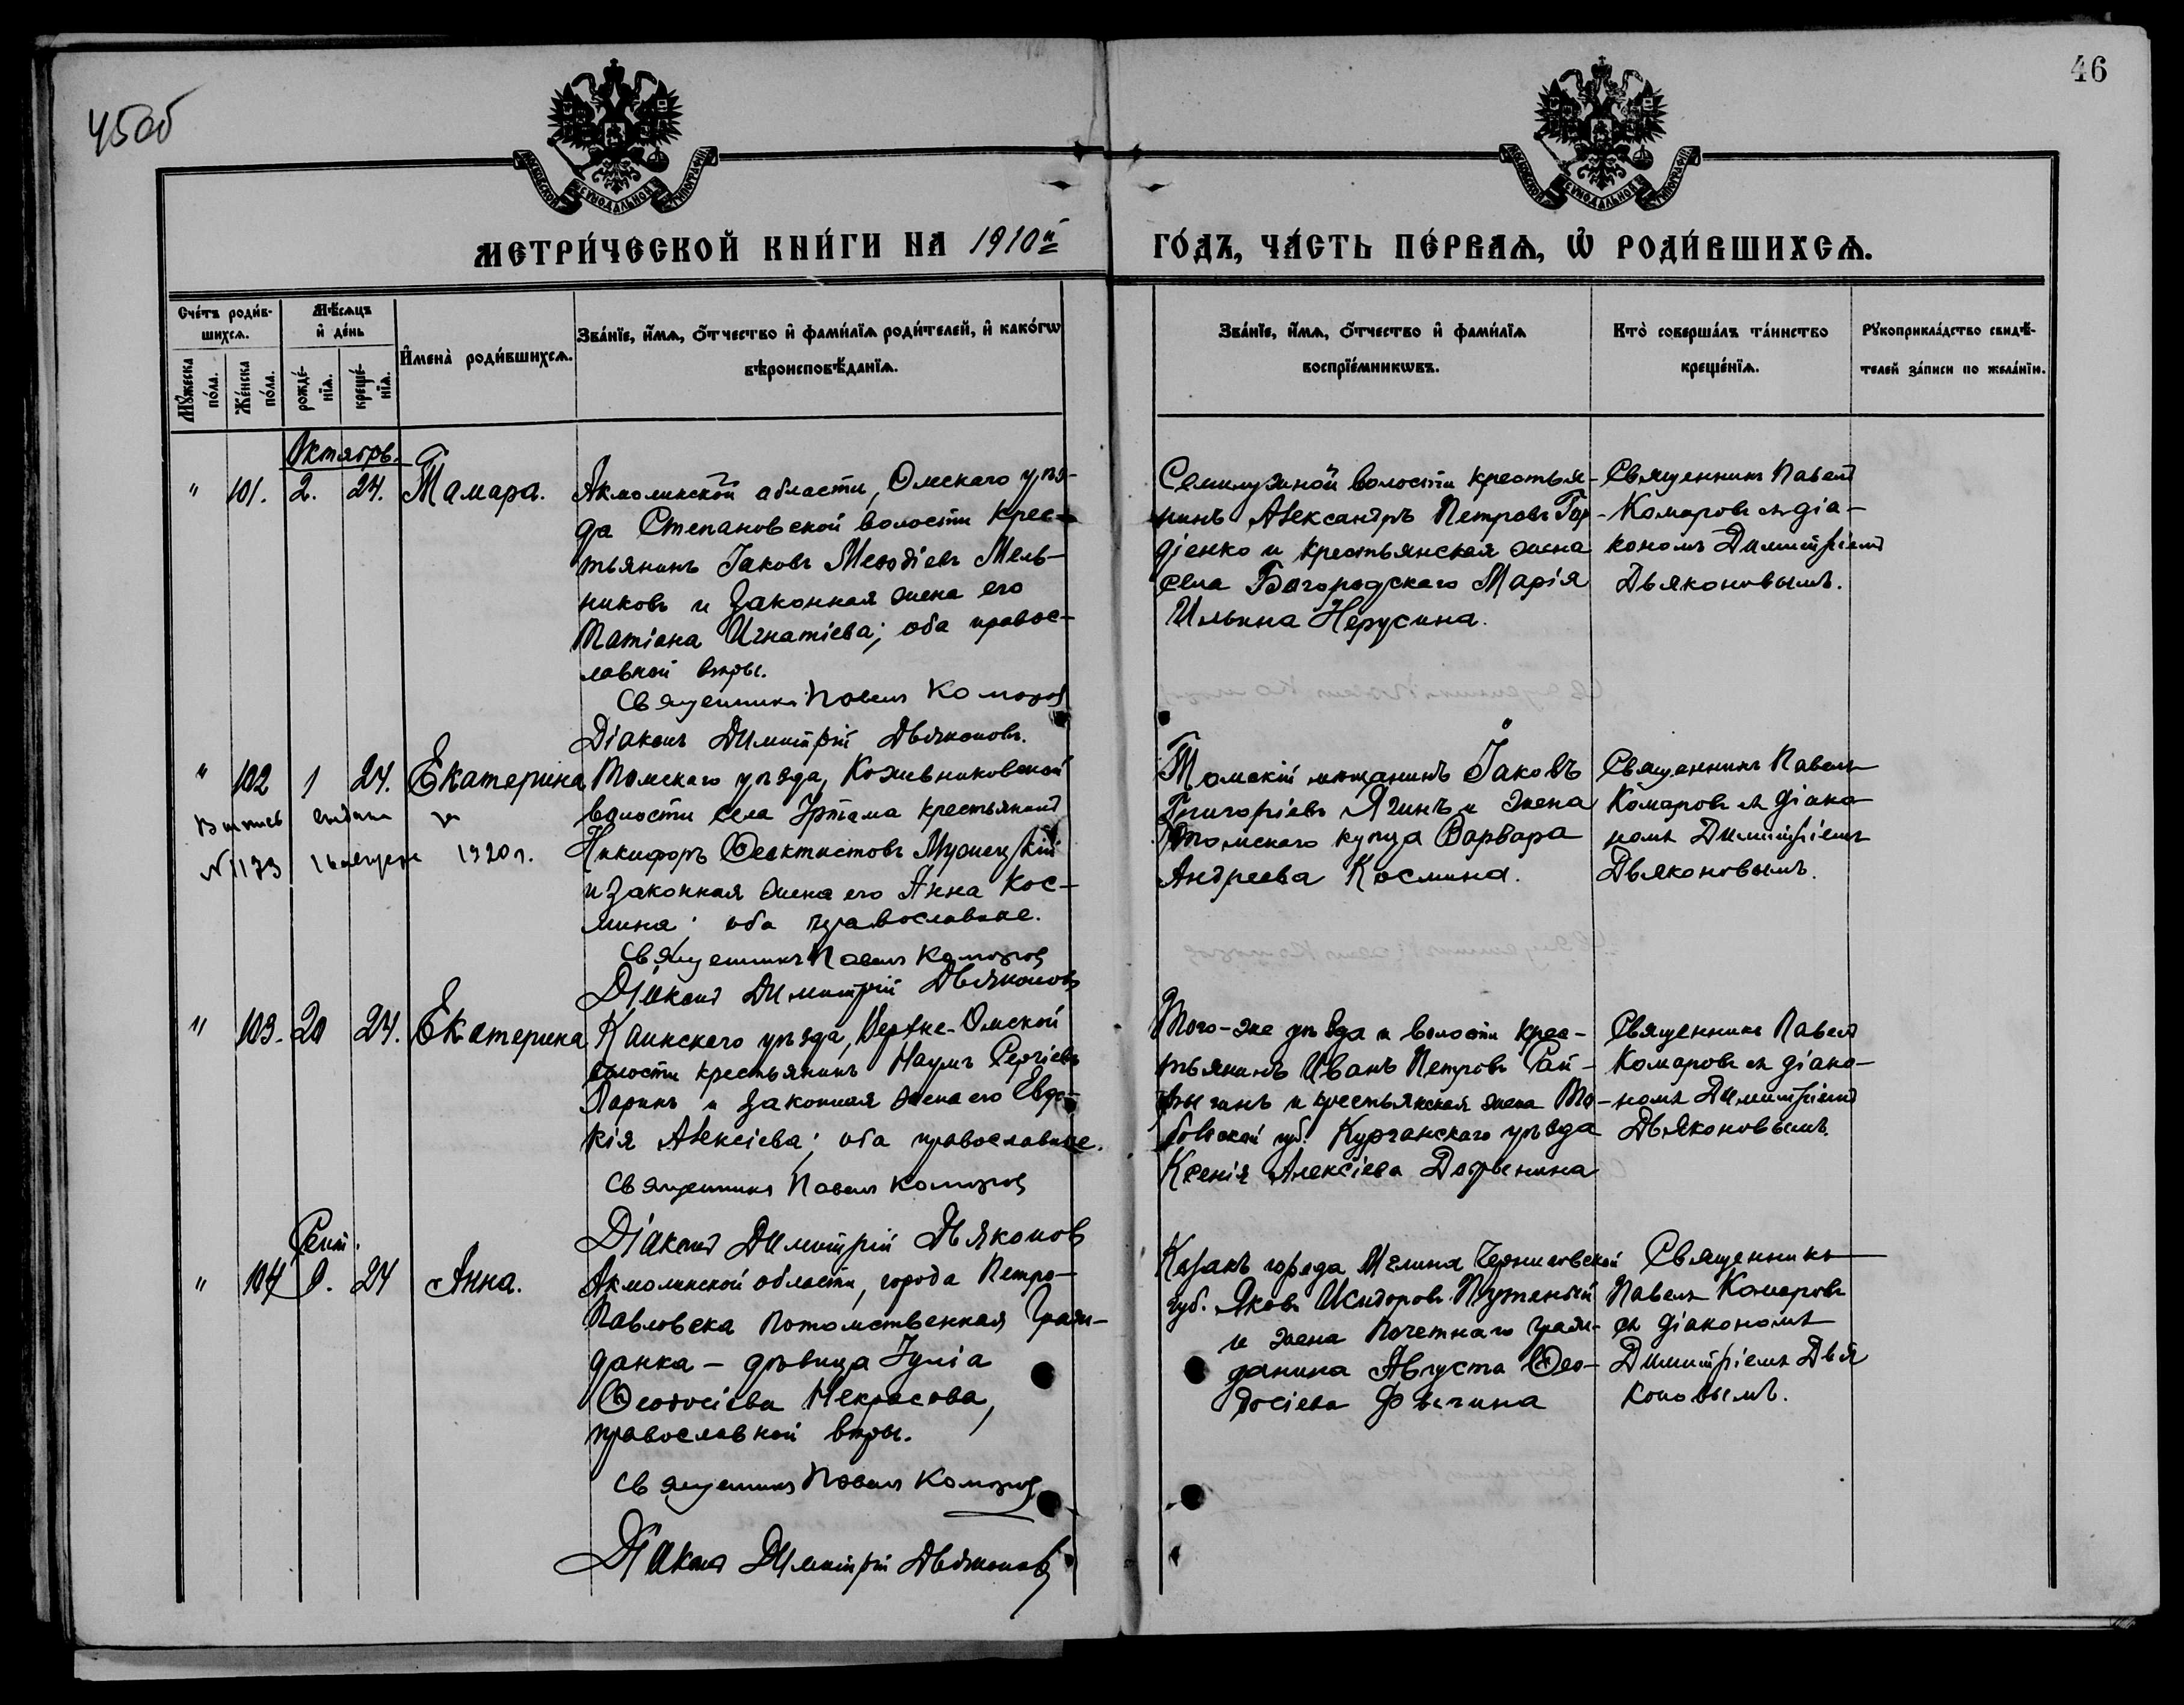 45об
46
МОСКОВСКОЙ СУНОДАЛЬНОЙ ТИПОГРАФІИ
МОСКОВСКОЙ СУНОДАЛЬНОЙ ТИПОГРАФІИ
МЕТРИ́ЧЕСКОЙ КНИ́ГИ НА 1910й ГО́ДЪ, ЧА́СТЬ ПЕ́РВАѦ, Ѡ҆ РОДИ́ВШИХСѦ.
Сче́тъ роди́в-
шихсѧ.
Мꙋ́жеска по́ла.
Же́нска по́ла.
Мѣ́сѧцъ
и҆ де́нь
рожде́-
нїѧ.
креще́-
нїѧ.
И҆мена̀ роди́вшихсѧ.
Зва́нїе, и҆́мѧ, ѻ҆́тчество и҆ фами́лїѧ роди́телей, и҆ како́гѡ
вѣроисповѣ́данїѧ.
Зва́нїе, и҆́мѧ, ѻ҆́тчество и҆ фами́лїѧ
воспрїе́мникѡвъ.
Кто̀ соверша́лъ та́инство
креще́нїѧ.
Рꙋкоприкла́дство свидѣ́-
телей за́писи по жела́нїю.
Октябрь.
" 101. 2. 24. Тамара.
Акмолинской области, Омскаго уѣз-
да Степановской волости крес-
тьянинъ Іаковъ Меѳодіевъ Мель-
никовъ и законная жена его
Татіана Игнатіева; оба правос-
лавной вѣры.
Священникъ Павелъ Комаровъ
Діаконъ Димитрій Дьяконовъ.
Семилужной волости крестья-
нинъ Александръ Петровъ Гор-
діенко и крестьянская жена
села Богородскаго Марія
Ильина Нерусина.
Священникъ Павелъ
Комаровъ съ діа-
кономъ Димитріемъ
Дьяконовымъ.
" 102 1 24. Екатерина
выдана за
№1173 16 августа 1920 г.
Томскаго уѣзда, Кожевниковской
волости села Уртама крестьянинъ
Никифоръ Ѳеоктистовъ
и законная жена его Анна Кос-
мина; оба православные.
Священникъ Павелъ Комаровъ
Діаконъ Димитрій Дьяконовъ
Томскій мѣщанинъ Іаковъ
Григорьевъ Ягинъ и жена
томскаго купца Варвара
Андреева Космина.
Священникъ Павелъ
Комаровъ съ діако-
номъ Димитріемъ
Дьяконовымъ.
" 103. 20 24. Екатерина
Каинскаго уѣзда, Верхне-Омской
волости крестьянинъ Наумъ Сергіевъ
Ларинъ и законная жена его Евдо-
кія Алексіева; оба православные.
Священникъ Павелъ Комаровъ
Діаконъ Димитрій Дьяконовъ
Того-же уѣзда и волости крес-
тьянинъ Иванъ Петровъ
и крестьянская жена То-
больской губ. Курганскаго уѣзда
Ксенія Алексіева
Священникъ Павелъ
Комаровъ съ діако-
номъ Димитріемъ
Дьяконовымъ.
Сент.
" 104 9. 24 Анна.
Акмолинской области, города Петро-
павловска потомственная граж-
данка – дѣвица Іулія
Ѳеодосіева Некрасова,
православной вѣры.
Священникъ Павелъ Комаровъ
Діаконъ Димитрій Дьяконовъ
Казакъ города Мглина Черниговской
губ. Яковъ Исидоровъ
и жена почетнаго граж-
данина Августа Ѳео-
досіева
Священникъ
Павелъ Комаровъ
съ діакономъ
Димитріемъ Дья-
коновымъ.